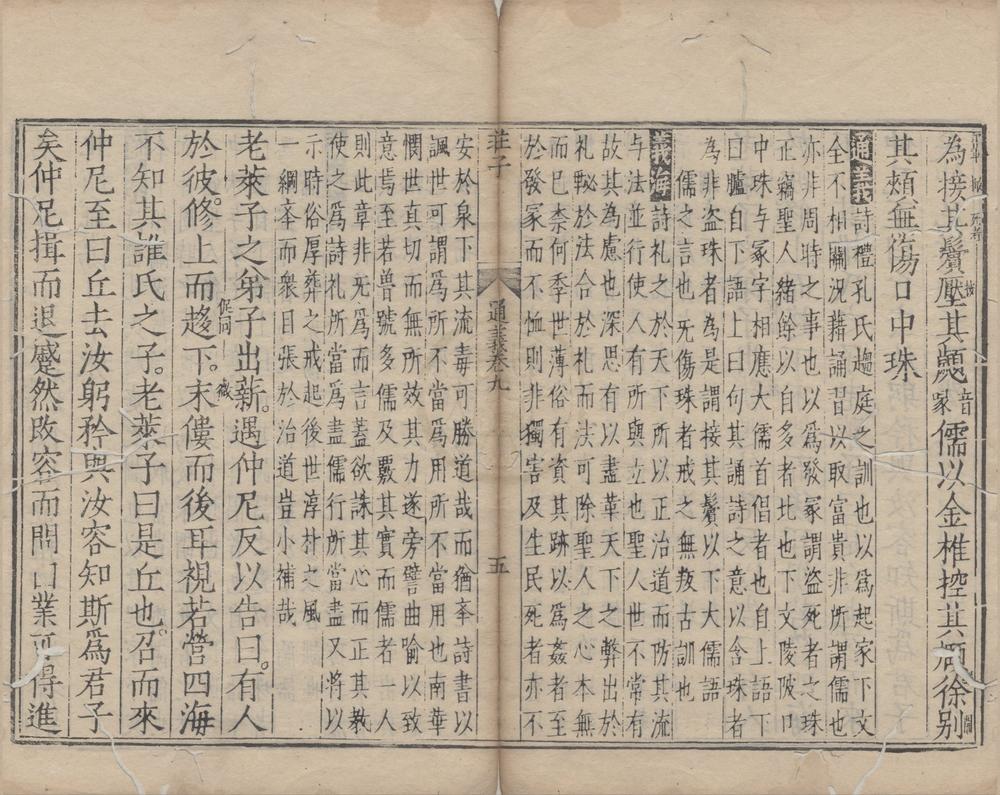 為接其鬢壓其顪儒以金椎控其頤徐別
其頰無傷口中珠
通義詩禮孔氏趨庭之訓也以爲起家下文
全不相關況藉誦習以取富貴非所謂儒也
亦非周時之事也以爲發冢謂盜死者之珠
正竊聖人緒餘以自多者比也下文陵陂口
中珠与冢字相應大儒首倡者也自上語下
曰臚自下語上曰句其誦詩之意以含珠者
為非盗珠者為是謂接其鬢以下大儒語
儒之言也旡傷珠者戒之無叛古訓也
義海詩礼之於天下所以正治道而防其流
与法並行使人有所與立也聖人世不常有
故其為慮也深思有以盡革天下之弊出於
礼輙於法合於礼而法可除聖人之心本無
而已柰何季世薄俗有資其跡以爲姦者至
於發冢而不恤則非獨害及生民死者亦不
莊子
通義卷九
五
安於泉下其流毒可勝道哉而猶奉詩書以
諷世可謂爲所不當爲用所不當用也南華
憫世真切而無所效其力遂旁譬曲喻以致
意焉至若獸號多儒及覈其實而儒者一人
則此章非旡爲而言蓋欲誅其心而正其教
使之爲詩礼所當爲盡儒行所當盡又將以
示時俗厚葬之戒起後世淳朴之風
一綱奉而衆目張於治道豈小補哉
老萊子之弟子出薪遇仲尼反以告曰有人
於彼修上而趨下末僂而後耳視若營四海
不知其誰氏之子老萊子曰是丘也召而來
仲尼至曰丘去汝躬矜與汝容知斯爲君子
矣仲尼揖而退蹙然改容而問曰業可得進